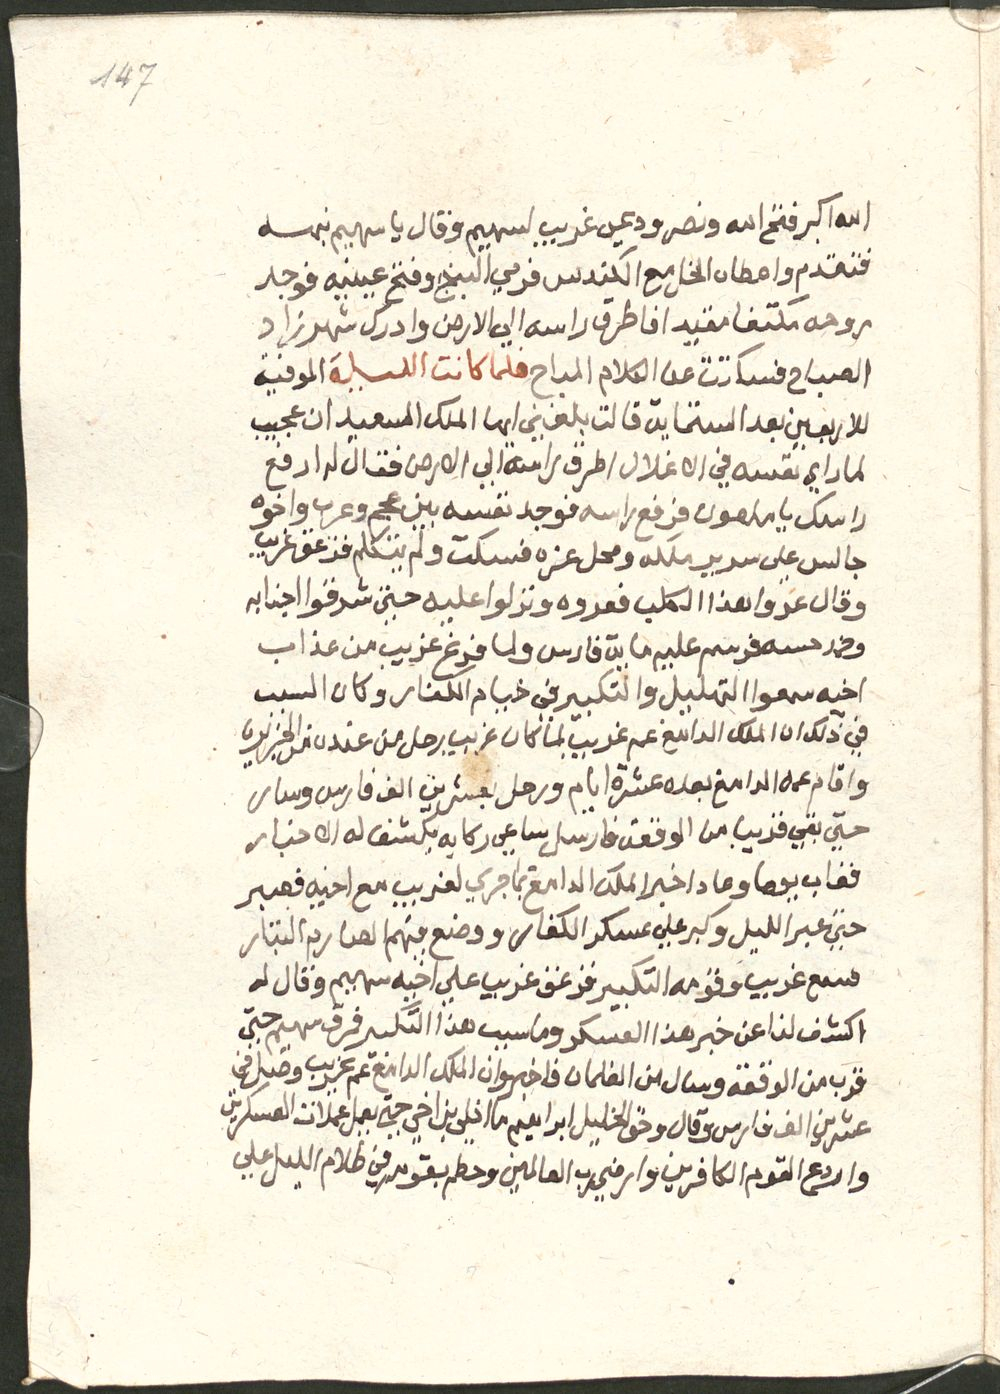 147
الله اكبر فتح الله ونصر ودعي غريب لسهيم وقال يا سهيم نبهه
فتقدم واعطاه الخل مع الكندس فرمي البنج وفتح عينيه فوجد
روحه مكتفا مقيدا فاطرق راسه الي الارض وادرك شهرزاد
الصباح فسكتت عن الكلام المباح فلما كانت الليلة الموفية
للاربعين بعد الستماية قالت بلغني ايها الملك السعيد ان عجيب
لما راي نفسه في الاغلال اطرق براسه الي الارض فقال له ارفع
راسك يا ملعون فرفع راسه فوجد نفسه بين عجم وعرب واخوه
جالس علي سرير ملكه ومحل عزه فسكت ولم يتكلم فزعق غريب
وقال عروا هذا الكلب فعروه ونزلوا عليه حتي شرفوا اجنابه
وخمد حسه فرسم عليه ماية فارس ولما فرغ غريب من عذاب
اخيه سمعوا التهليل والتكبير في خيام الكفار وكان السبب
في ذلك ان الملك الدامغ عم غريب لما كان غريب رحل من عنده من الجزيرة
واقام عمه الدامغ بعده عشرة ايام ورحل بعشرين الف فارس وسار
حتي بقي قريبا من الوقعة فارسل ساعي ركابه يكشف له الاخبار
فغاب يوما وعاد اخبر الملك الدامغ بما جري لغريب مع اخيه فصبر
حتي عبر الليل وكبر علي عسكر الكفار ووضع فيهم الصارم البتار
فسمع غريب وقومه التكبير فزعق غريب علي اخيه سهيم وقال له
اكشف لنا عن خبر هذا العسكر وما سبب هذا التكبير فمرق سهيم حتي
قرب من الوقعة وسال من الغلمان فاخبروه ان الملك الدامغ عم غريب وصل في
عشرين الف فارس وقال وحق الخليل ابراهيم ما اخلي بن اخي حتي بعمل عملات العسكرين
واردع القوم الكافرين وارضي رب العالمين وحطم بقومه في ظلام الليل علي